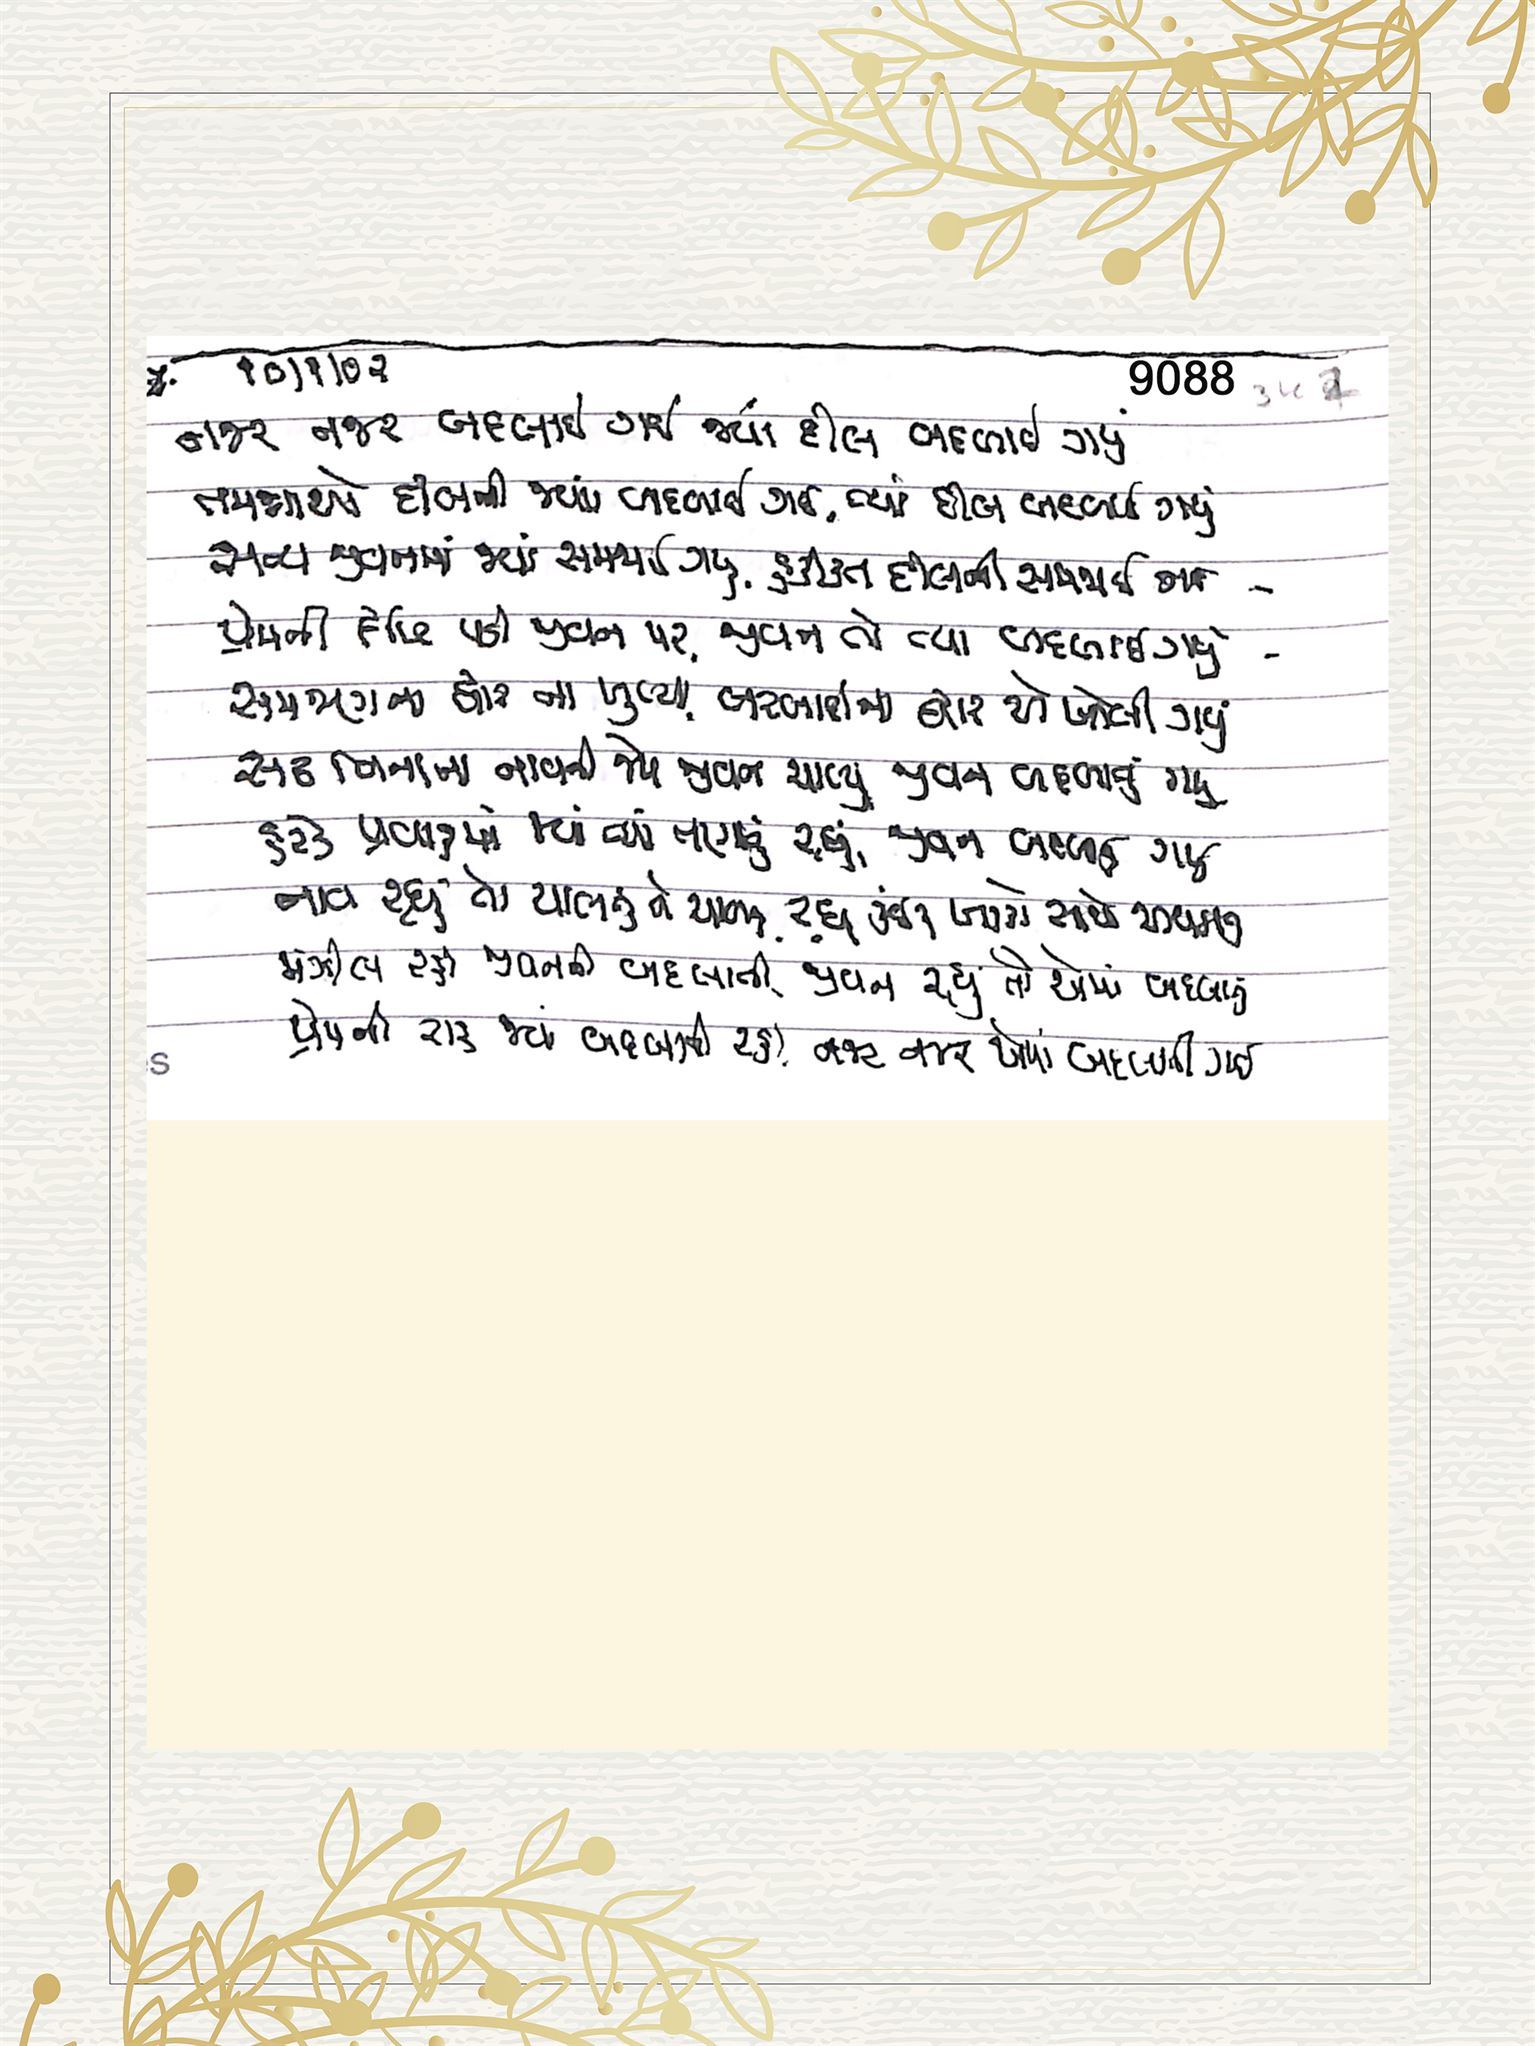 ૧૦)૧)૦૨
9088
નજર નજર બદલાઈ ગઈ જ્યાં દીલ બદલાઈ ગયું
તમન્નાઓ દીલની જ્યાં બદલાઈ ગઈ, ત્યાં દીલ બદલાઈ ગયું
સત્ય જીવનમાં જ્યાં સમજાઈ ગયું, હકીકત દીલની સમજાઈ ગઈ -
પ્રેમની દૃષ્ટિ પડી જીવન પર, જીવન તો ત્યાં બદલાઈ ગયું -
સમજણના દ્વાર ના ખુલ્યા, બરબાદીના દ્વાર એ ખોલી ગયું
સઢ વિનાના નાવની જેમ જીવન ચાલ્યું જીવન બદલાતું ગયું
હરેક પ્રવાહમાં જ્યાં ત્યાં તણાતું રહ્યું, જીવન બદલાતું ગયું
નાવ રહ્યું તો ચાલતું ને ચાલતું રહ્યું
મંઝીલ રહી જીવનની બદલાતી, જીવન રહ્યું તો એમાં બદલાતું
પ્રેમની રાહ જ્યાં બદલાતી રહી, નજર નજર એમાં બદલાતી ગઈ